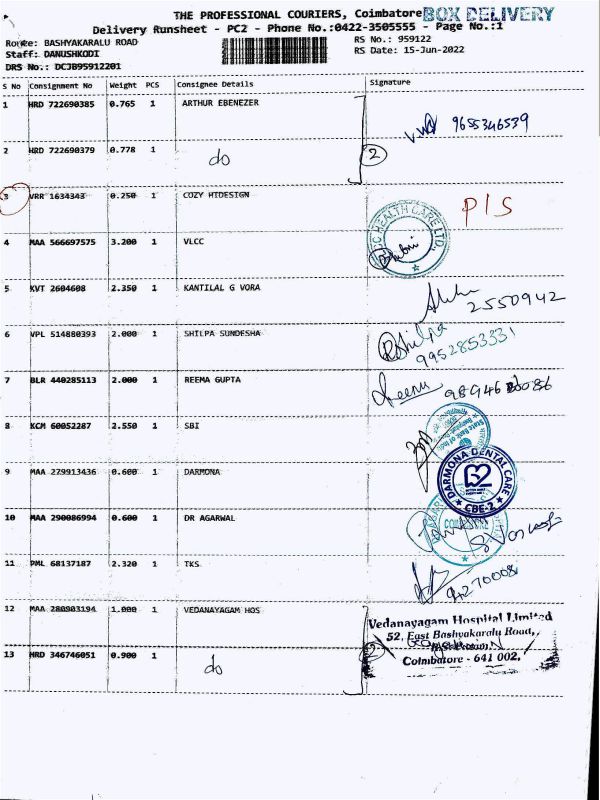 THE PROFESSIONAL COURIERS, Coimbatore BOX DELIVERY
Delivery Runsheet - PC2 - Phone No.:0422-3505555 - Page No.:1
Route: BASHYAKARALU ROAD
RS No.: 959122
Staff: DANUSHKODI
RS Date: 15-Jun-2022
DRS No.: DCJB95912201
S No Consignment No Weight PCS Consignee Details Signature
1 HRD 722690385 0.765 1 ARTHUR EBENEZER
9655346539
2 HRD 722690379 0.778 1 do 2
3 VRR 1634343 0.250 1 COZY HIDESIGN P/S
HEALTH CARE LTD.
4 MAA 566697575 3.200 1 VLCC
5 KVT 2604608 2.350 1 KANTILAL G VORA
2550942
6 VPL 514880393 2.000 1 SHILPA SUNDESHA Shilpa
9952853331
7 BLR 440285113 2.000 1 REEMA GUPTA Reenu
8 KCM 60052287 2.550 1 SBI
State Bank of India
9 MAA 279913436 0.600 1 DARMONA DARMONA DENTAL CARE
CBE-2
10 MAA 290086994 0.600 1 DR AGARWAL
11 PML 68137187 2.320 1 TKS
94270008
12 MAA 280903194 1.000 1 VEDANAYAGAM HOS
Vedanayagam Hospital Limited
52, East Bashyakaralu Road,
13 HRD 346746051 0.900 1 do 2
Coimbatore - 641 002.